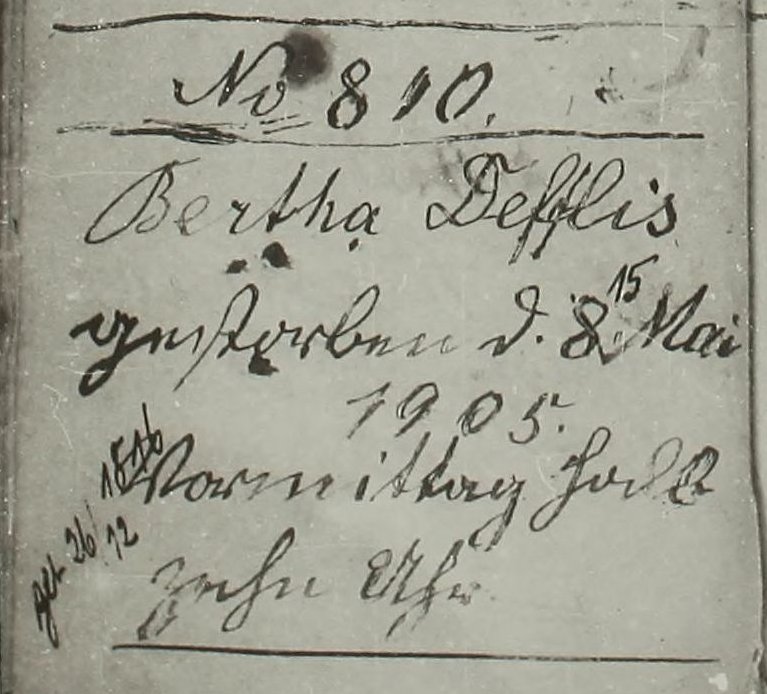 No 810.
Bertha Defflis
gestorben d. 8. 15 Mai
1905.
Vormittag halb
zehn Uhr
geb 26/12